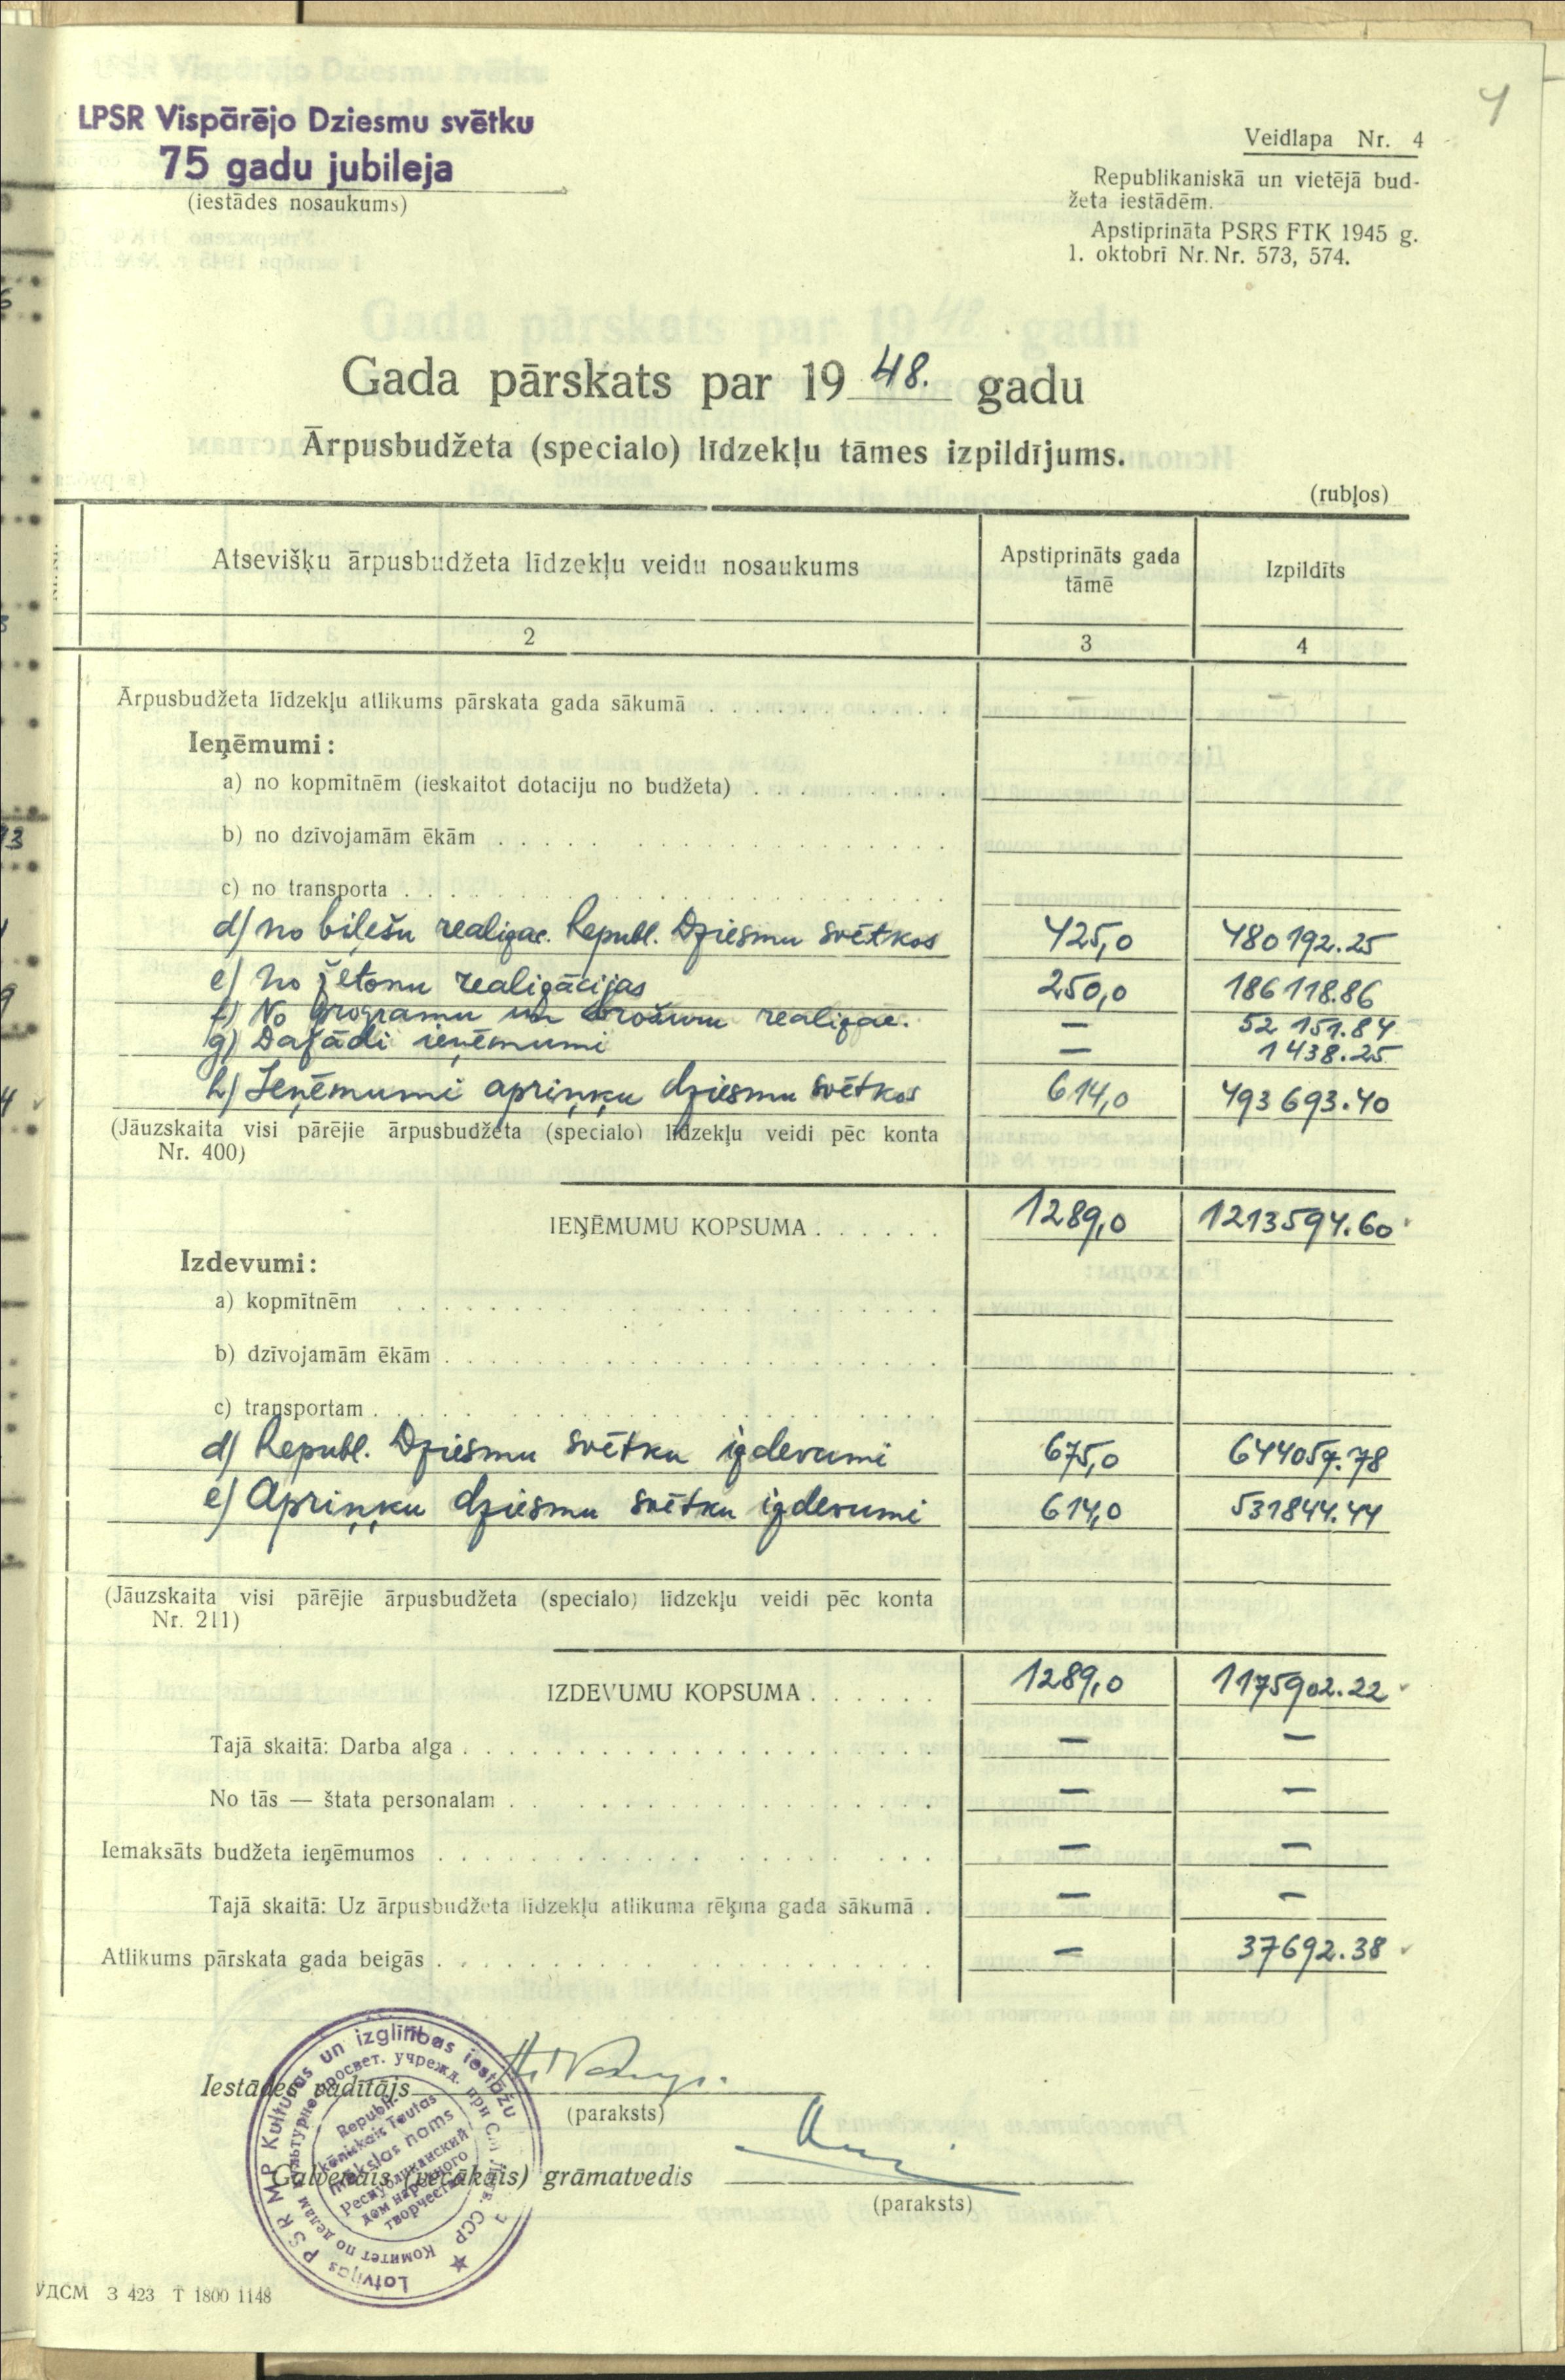 4
LPSR Vispārējo Dziesmu svētku
75 gadu jubileja
(iestādes nosaukums)
Veidlapa Nr. 4
Republikaniskā un vietējā bud-
žeta iestādēm.
Apstiprināta PSRS FTK 1945 g.
1. oktobrī Nr. Nr. 573, 574.
Gada pārskats par 1948. gadu
Ārpusbudžeta (specialo) līdzekļu tāmes izpildījums.
(rubļos)
Atsevišķu ārpusbudžeta līdzekļu veidu nosaukums Apstiprināts gada tāmē Izpildīts
2 3 4
Ārpusbudžeta līdzekļu atlikums pārskata gada sākumā — —
Ieņēmumi:
a) no kopmītnēm (ieskaitot dotaciju no budžeta)
b) no dzīvojamām ēkām
c) no transporta
d) no biļešu realizac. Republ. Dziesmu svētkos 425,0 480192.25
e) no žetonu realizācijas 250,0 186118.86
f) No programu un brošuru realizac. — 52151.84
g) Dažādi ieņēmumi — 1438.25
h) Ieņēmumi apriņķu dziesmu svētkos 614,0 493693.40
(Jāuzskaita visi pārējie ārpusbudžeta (specialo) līdzekļu veidi pēc konta
Nr. 400)
IEŅĒMUMU KOPSUMA 1289,0 1213594.60
Izdevumi:
a) kopmītnēm
b) dzīvojamām ēkām
c) transportam
d) Republ. Dziesmu svētku izdevumi 675,0 644057.78
e) Apriņķu dziesmu svētku izdevumi 614,0 531844.44
(Jāuzskaita visi pārējie ārpusbudžeta (specialo) līdzekļu veidi pēc konta
Nr. 211)
IZDEVUMU KOPSUMA 1289,0 1175902.22
Tajā skaitā: Darba alga — —
No tās — štata personalam — —
Iemaksāts budžeta ieņēmumos — —
Tajā skaitā: Uz ārpusbudžeta līdzekļu atlikuma rēķina gada sākumā — —
Atlikums pārskata gada beigās — 37692.38
Iestādes vadītājs
(paraksts)
Galvenais (vecākais) grāmatvedis
(paraksts)
Latvijas PSR MP Kulturas un izglītības iestāžu
Republikāniskais Tautas
mākslas nams
Республиканский
дом народного
творчества
УДСМ З 423 Т 1800 1148